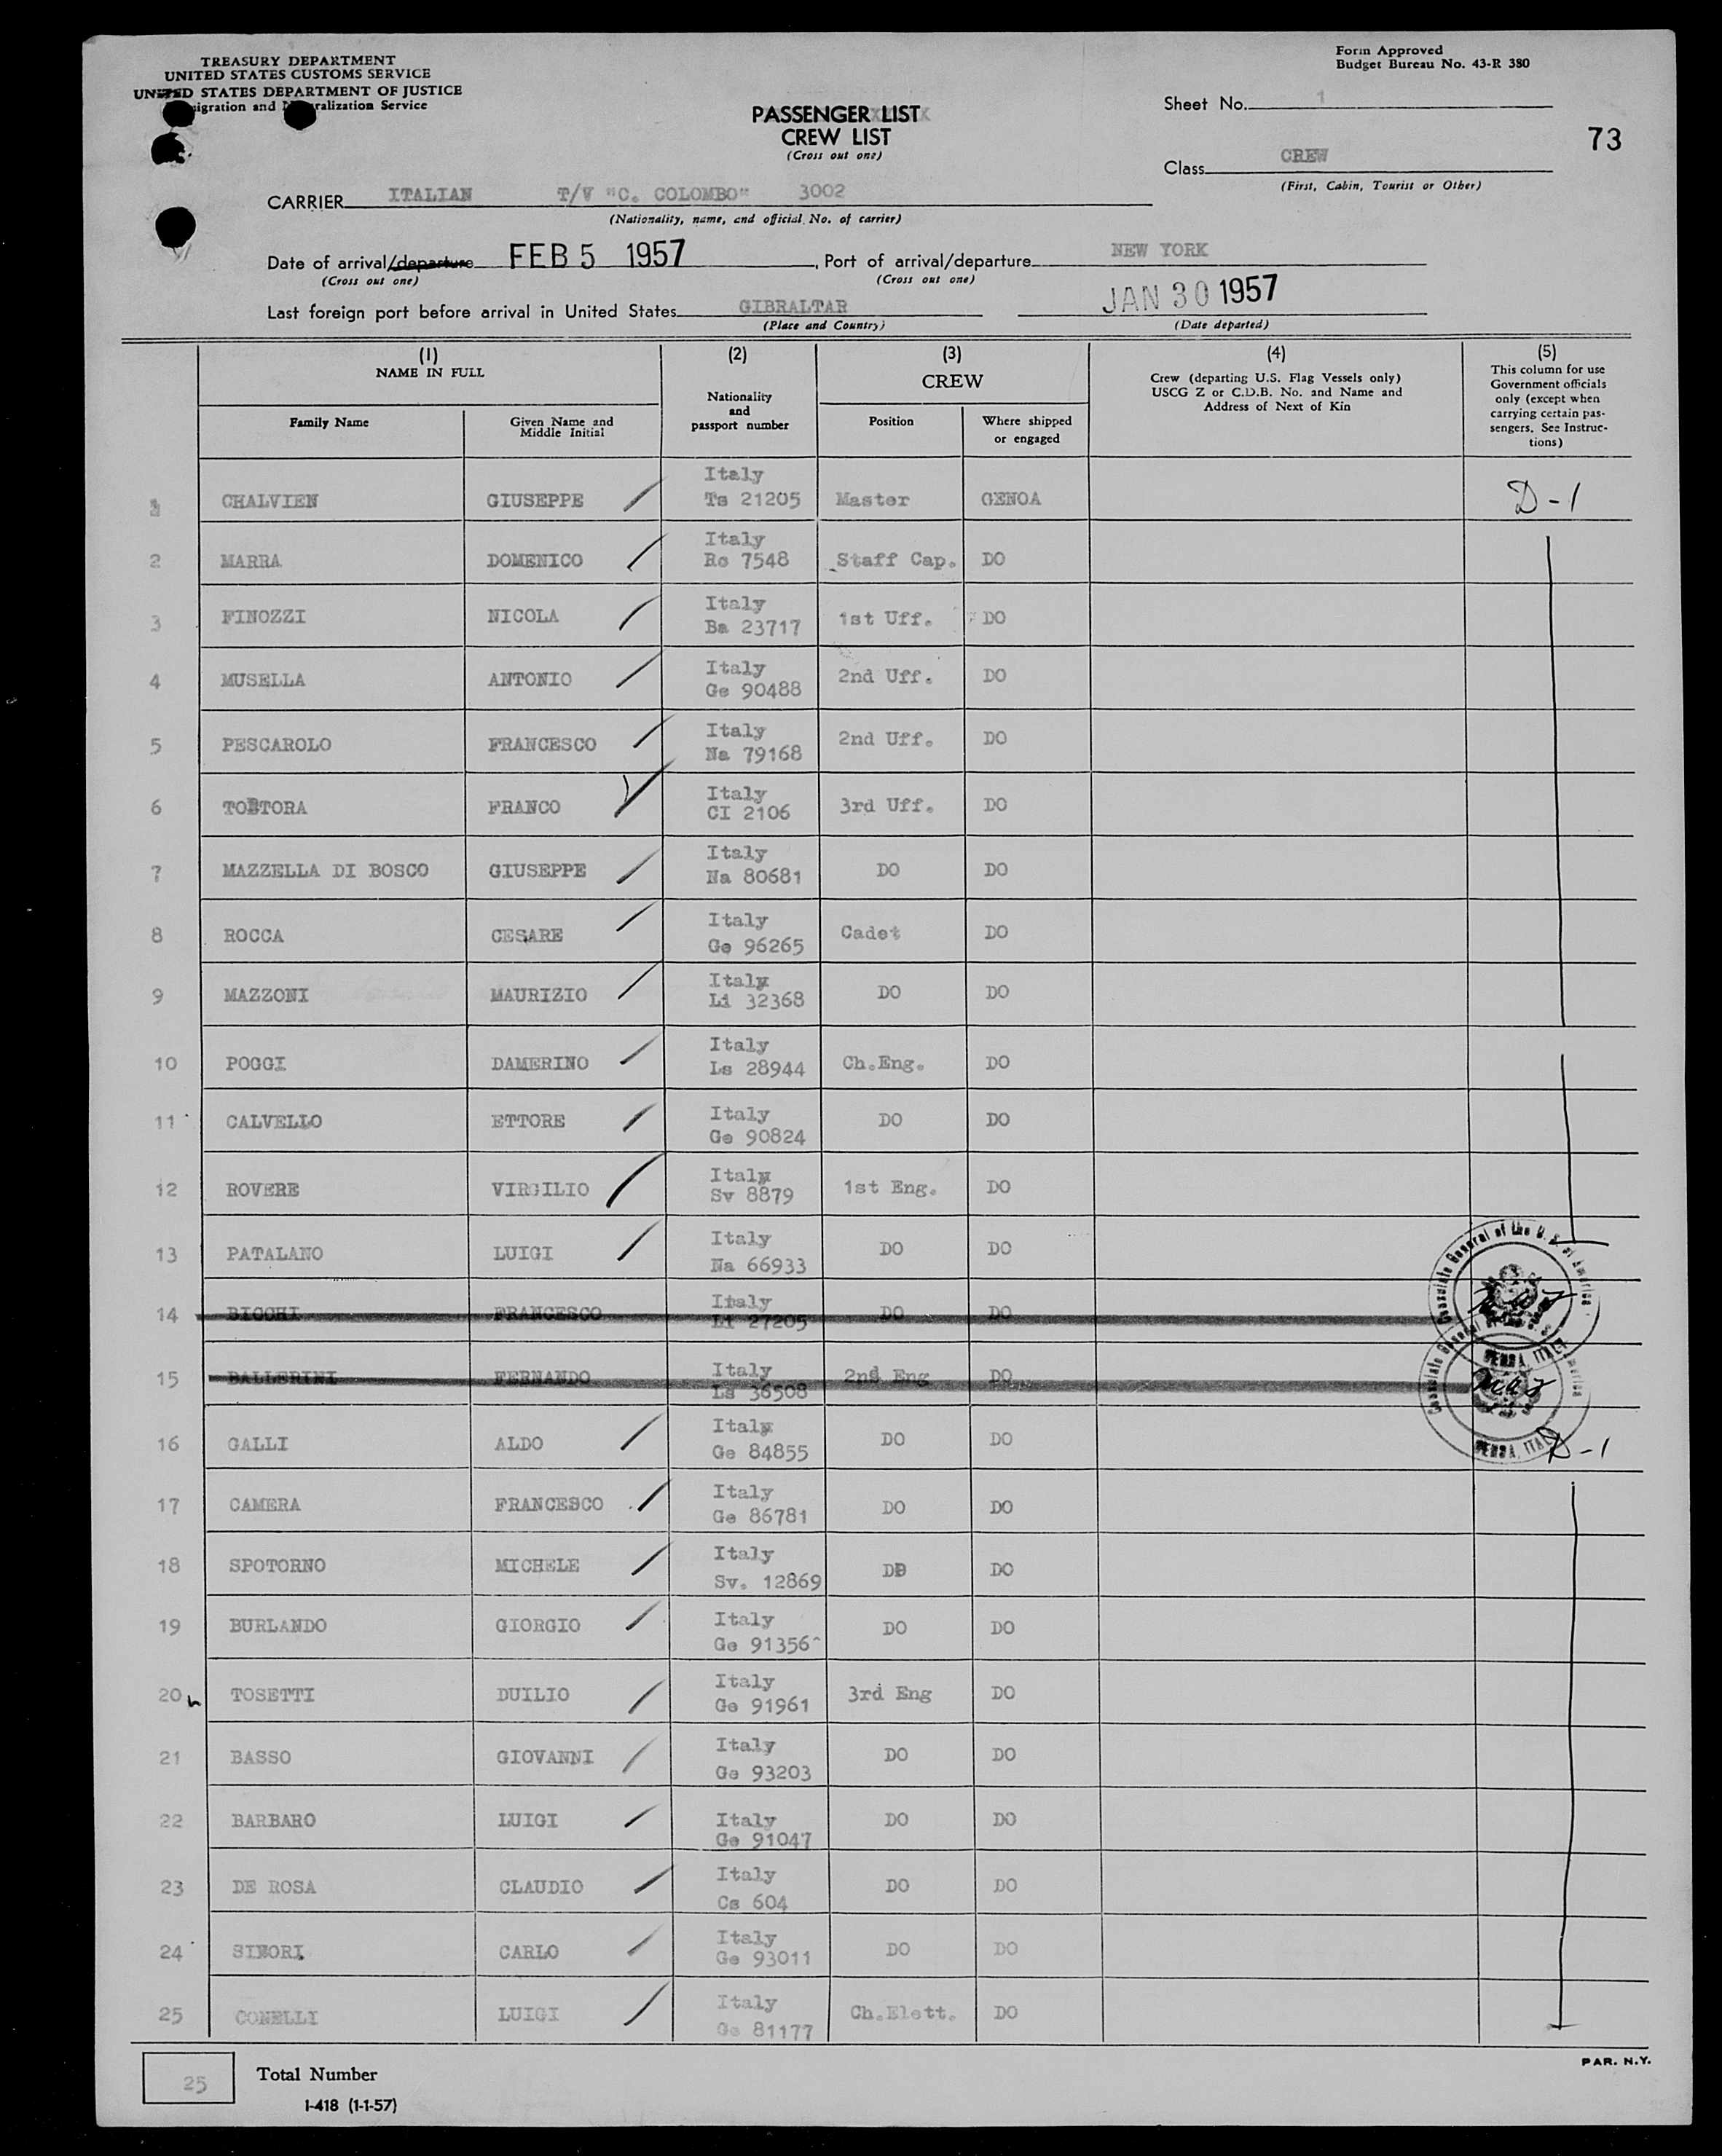 TREASURY DEPARTMENT
UNITED STATES CUSTOMS SERVICE
UNITED STATES DEPARTMENT OF JUSTICE
Immigration and Naturalization Service
Form Approved
Budget Bureau No. 43-R 380
PASSENGER LIST
CREW LIST
(Cross out one)
Sheet No. 1
73
Class CREW
(First, Cabin, Tourist or Other)
CARRIER ITALIAN T/V "C. COLOMBO" 3002
(Nationality, name, and official No. of carrier)
Date of arrival/departure FEB 5 1957, Port of arrival/departure NEW YORK
(Cross out one) (Cross out one)
Last foreign port before arrival in United States GIBRALTAR JAN 30 1957
(Place and Country) (Date departed)
(1) NAME IN FULL
Family Name
Given Name and Middle Initial
(2) Nationality and passport number
(3) CREW
Position
Where shipped or engaged
(4) Crew (departing U.S. Flag Vessels only) USCG Z or C.D.B. No. and Name and Address of Next of Kin
(5) This column for use Government officials only (except when carrying certain passengers. See Instructions)
1 CHALVIEN GIUSEPPE Italy Ts 21205 Master GENOA D-1
2 MARRA DOMENICO Italy Ro 7548 Staff Cap. DO
3 FINOZZI NICOLA Italy Ba 23717 1st Uff. DO
4 MUSELLA ANTONIO Italy Ge 90488 2nd Uff. DO
5 PESCAROLO FRANCESCO Italy Na 79168 2nd Uff. DO
6 TORTORA FRANCO Italy CI 2106 3rd Uff. DO
7 MAZZELLA DI BOSCO GIUSEPPE Italy Na 80681 DO DO
8 ROCCA CESARE Italy Ge 96265 Cadet DO
9 MAZZONI MAURIZIO Italy Li 32368 DO DO
10 POGGI DAMERINO Italy Ls 28944 Ch.Eng. DO
11 CALVELLO ETTORE Italy Ge 90824 DO DO
12 ROVERE VIRGILIO Italy Sv 8879 1st Eng. DO
13 PATALANO LUIGI Italy Na 66933 DO DO
14 BICCHI FRANCESCO Italy Li 27205 DO DO
15 BALLERINI FERNANDO Italy Ls 36508 2nd Eng DO
16 GALLI ALDO Italy Ge 84855 DO DO D-1
17 CAMERA FRANCESCO Italy Ge 86781 DO DO
18 SPOTORNO MICHELE Italy Sv. 12869 DO DO
19 BURLANDO GIORGIO Italy Ge 91356 DO DO
20 TOSETTI DUILIO Italy Ge 91961 3rd Eng DO
21 BASSO GIOVANNI Italy Ge 93203 DO DO
22 BARBARO LUIGI Italy Ge 91047 DO DO
23 DE ROSA CLAUDIO Italy Cs 604 DO DO
24 SINORI CARLO Italy Ge 93011 DO DO
25 CONELLI LUIGI Italy Ge 81177 Ch.Elett. DO
Consulate General of the U. S. of America
GENOA, ITALY
Consulate General
America
GENOA, ITALY
PAR. N.Y.
25 Total Number
I-418 (1-1-57)